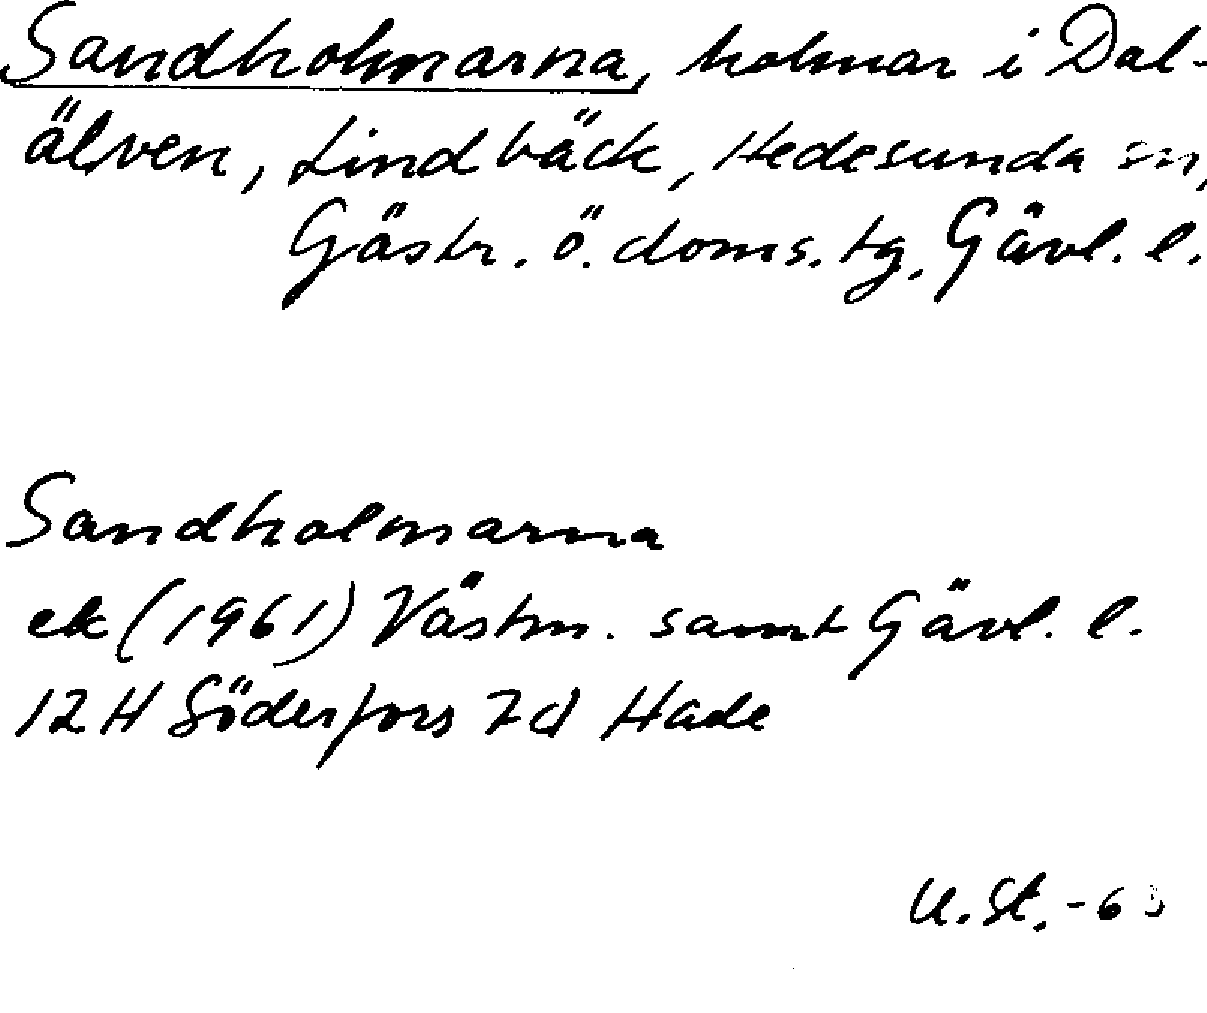 Sandholmarna, holmar i Dal-
älven, Lindbäck, Hedesunda sn,
Gästr. ö. doms. tg. Gävl. l.
Sandholmarna
ek (1961) Västm. samt Gävl. l.
12 H Söderfors 7 d Hade
U. St.